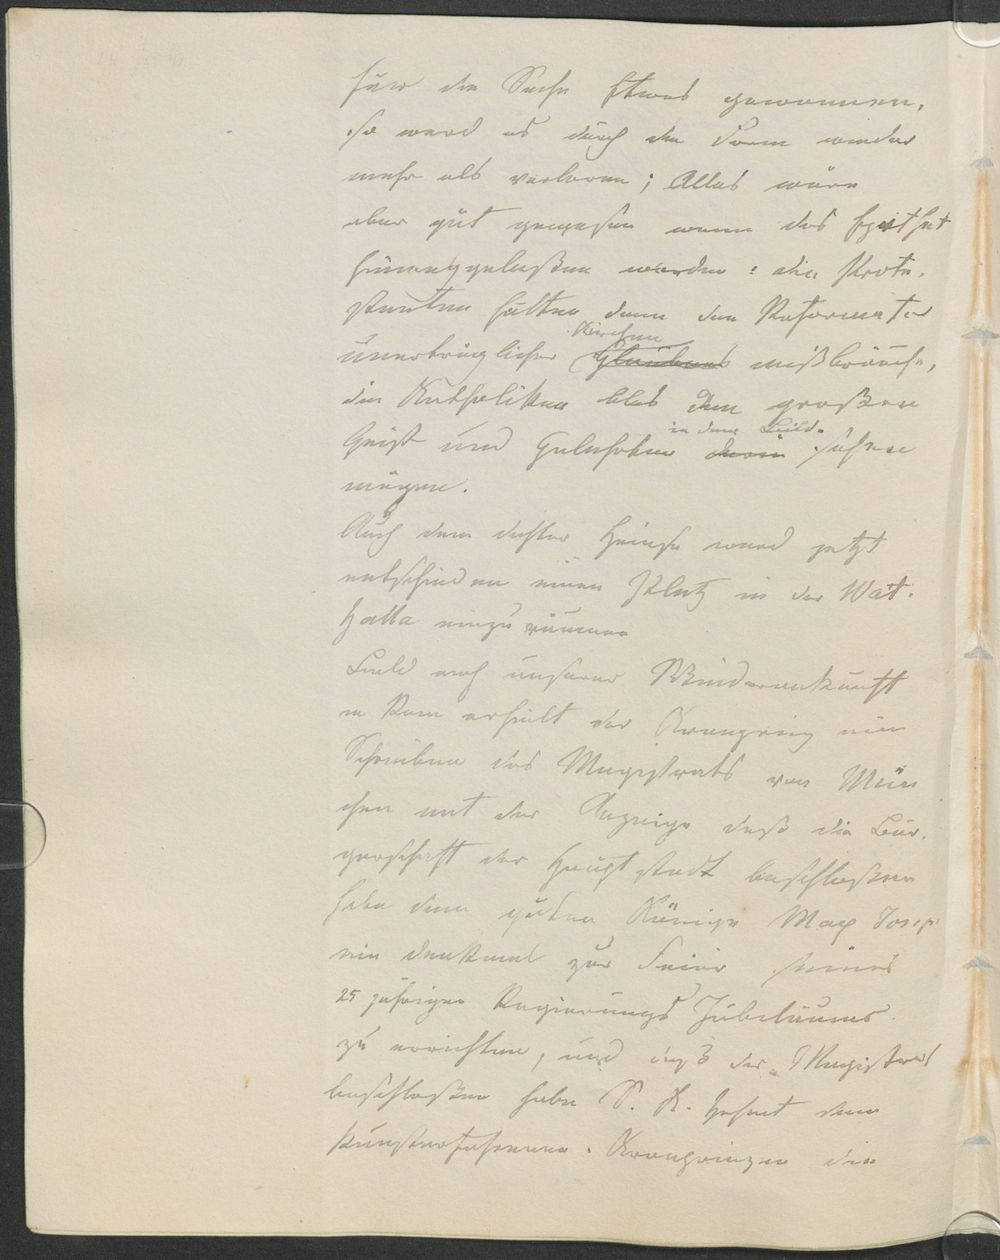 für die Sache Etwas gewonnen,
so ward es durch die Form wieder
mehr als verloren; Alles wäre
aber gut gewesen wenn das Epithet
hinweggelaßen worden: die Prote-
stanten hätten dann den Reformator
unerträglicher Kirchen Glaubens mißbräuche,
die Katholiken blos den großen
Geist und Gelehrten in dem Bilde darin sehen
mögen.
Auch dem dichter Heinse ward jetzt
entschieden einen Platz in der Wal-
halla einzuräumen
Bald nach unserer Wiederankunft
in Rom erhielt der Kronprinz ein
Schreiben des Magistrats von Mün
chen mit der Anzeige daß die Bür-
gerschaft der Hauptstadt beschloßen
habe dem guten Könige Max Joseph
ein denkmal zur Feier seines
25 jährigen Regierungs Jubiläums
zu errichten, und daß der Magistrat
beschloßen habe S. K. Hoheit dem
kunsterfahrenen Kronprinzen die